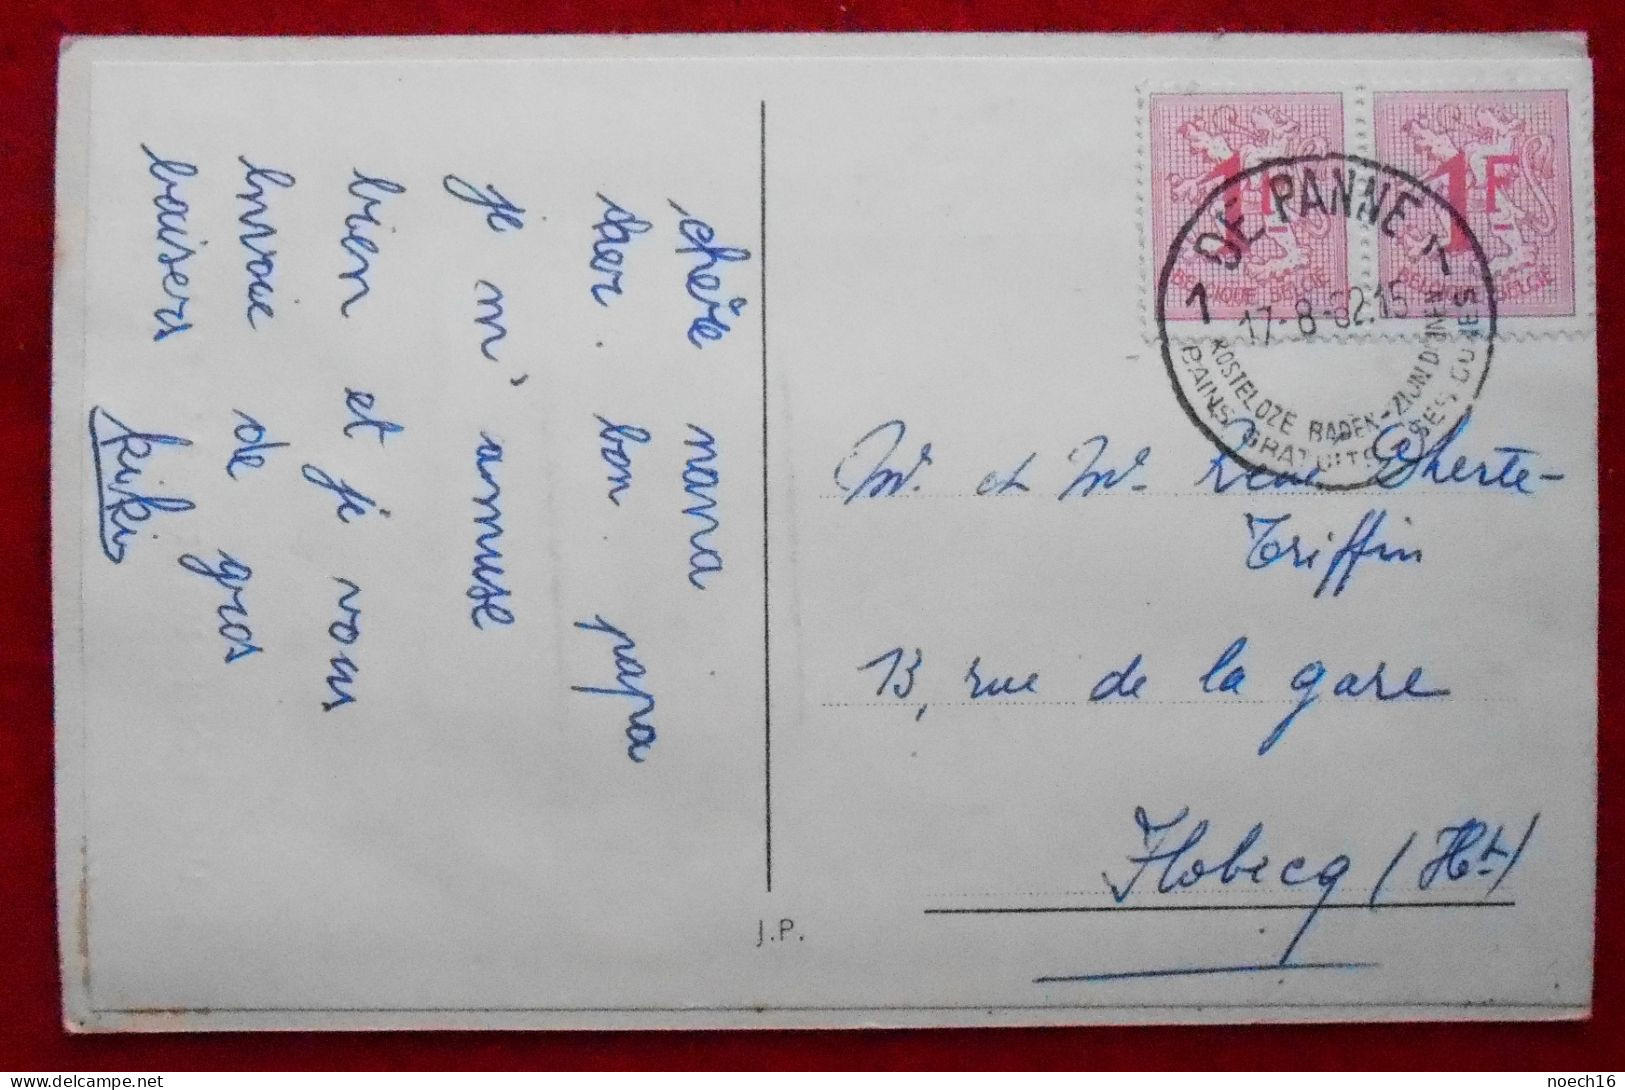 chère nana
cher bon papa
je m'amuse
bien et je vous
envoie de gros
baisers
kiki
1F
BELGIQUE-BELGIË
1F
BELGIQUE-BELGIË
DE PANNE 1
1
17-8-62.15
KOSTELOZE BADEN-ZIJN DUINEN
BAINS GRATUITS SES DUNES
Mr et Mme René Dherte-
Triffin
13, rue de la gare
Flobecq (Ht)
J.P.
noech16